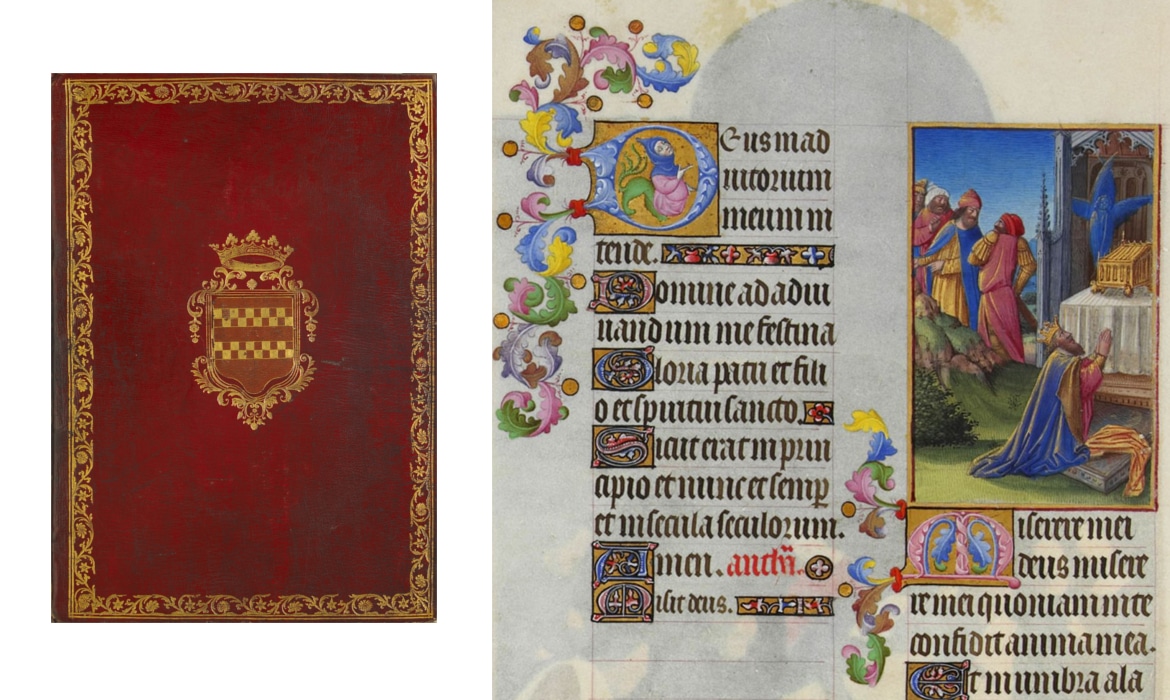 Deus in ad
iutorium
meum in
tende.
Domine ad adiu
uandum me festina
Gloria patri et fili
o et spiritui sancto.
Sicut erat in prin
cipio et nunc et semꝑ
et in secula seculorum.
Amen.
Misit deus.
Miserere mei
deus misere
re mei quoniam in te
confidit anima mea.
Et in umbra ala